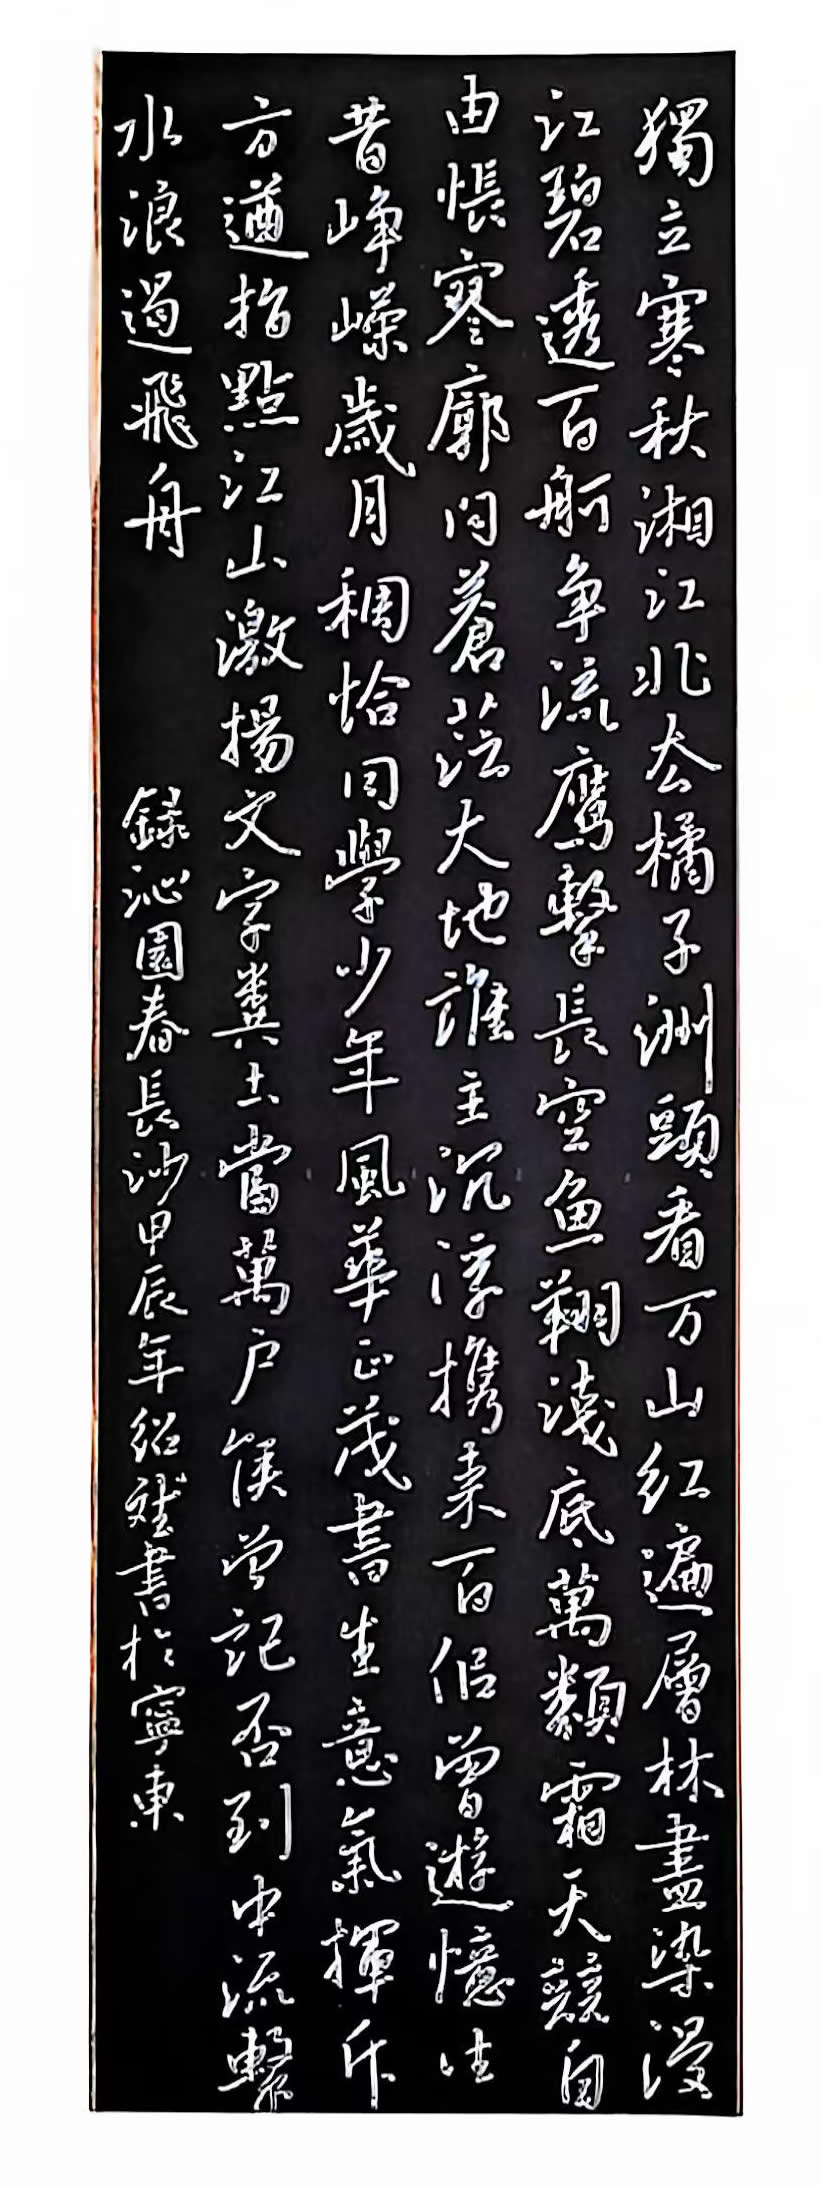 獨立寒秋湘江北去橘子洲頭看万山红遍層林盡染漫
江碧透百舸争流鹰擊長空魚翔淺底萬類霜天競自
由悵寥廓问蒼茫大地誰主沉浮携来百侣曾遊憶往
昔崢嶸歲月稠恰同學少年風華正茂書生意氣揮斥
方遒指點江山激揚文字糞土當萬户侯曾記否到中流擊
水浪遏飛舟
錄沁園春長沙甲辰年绍斌書於寧東